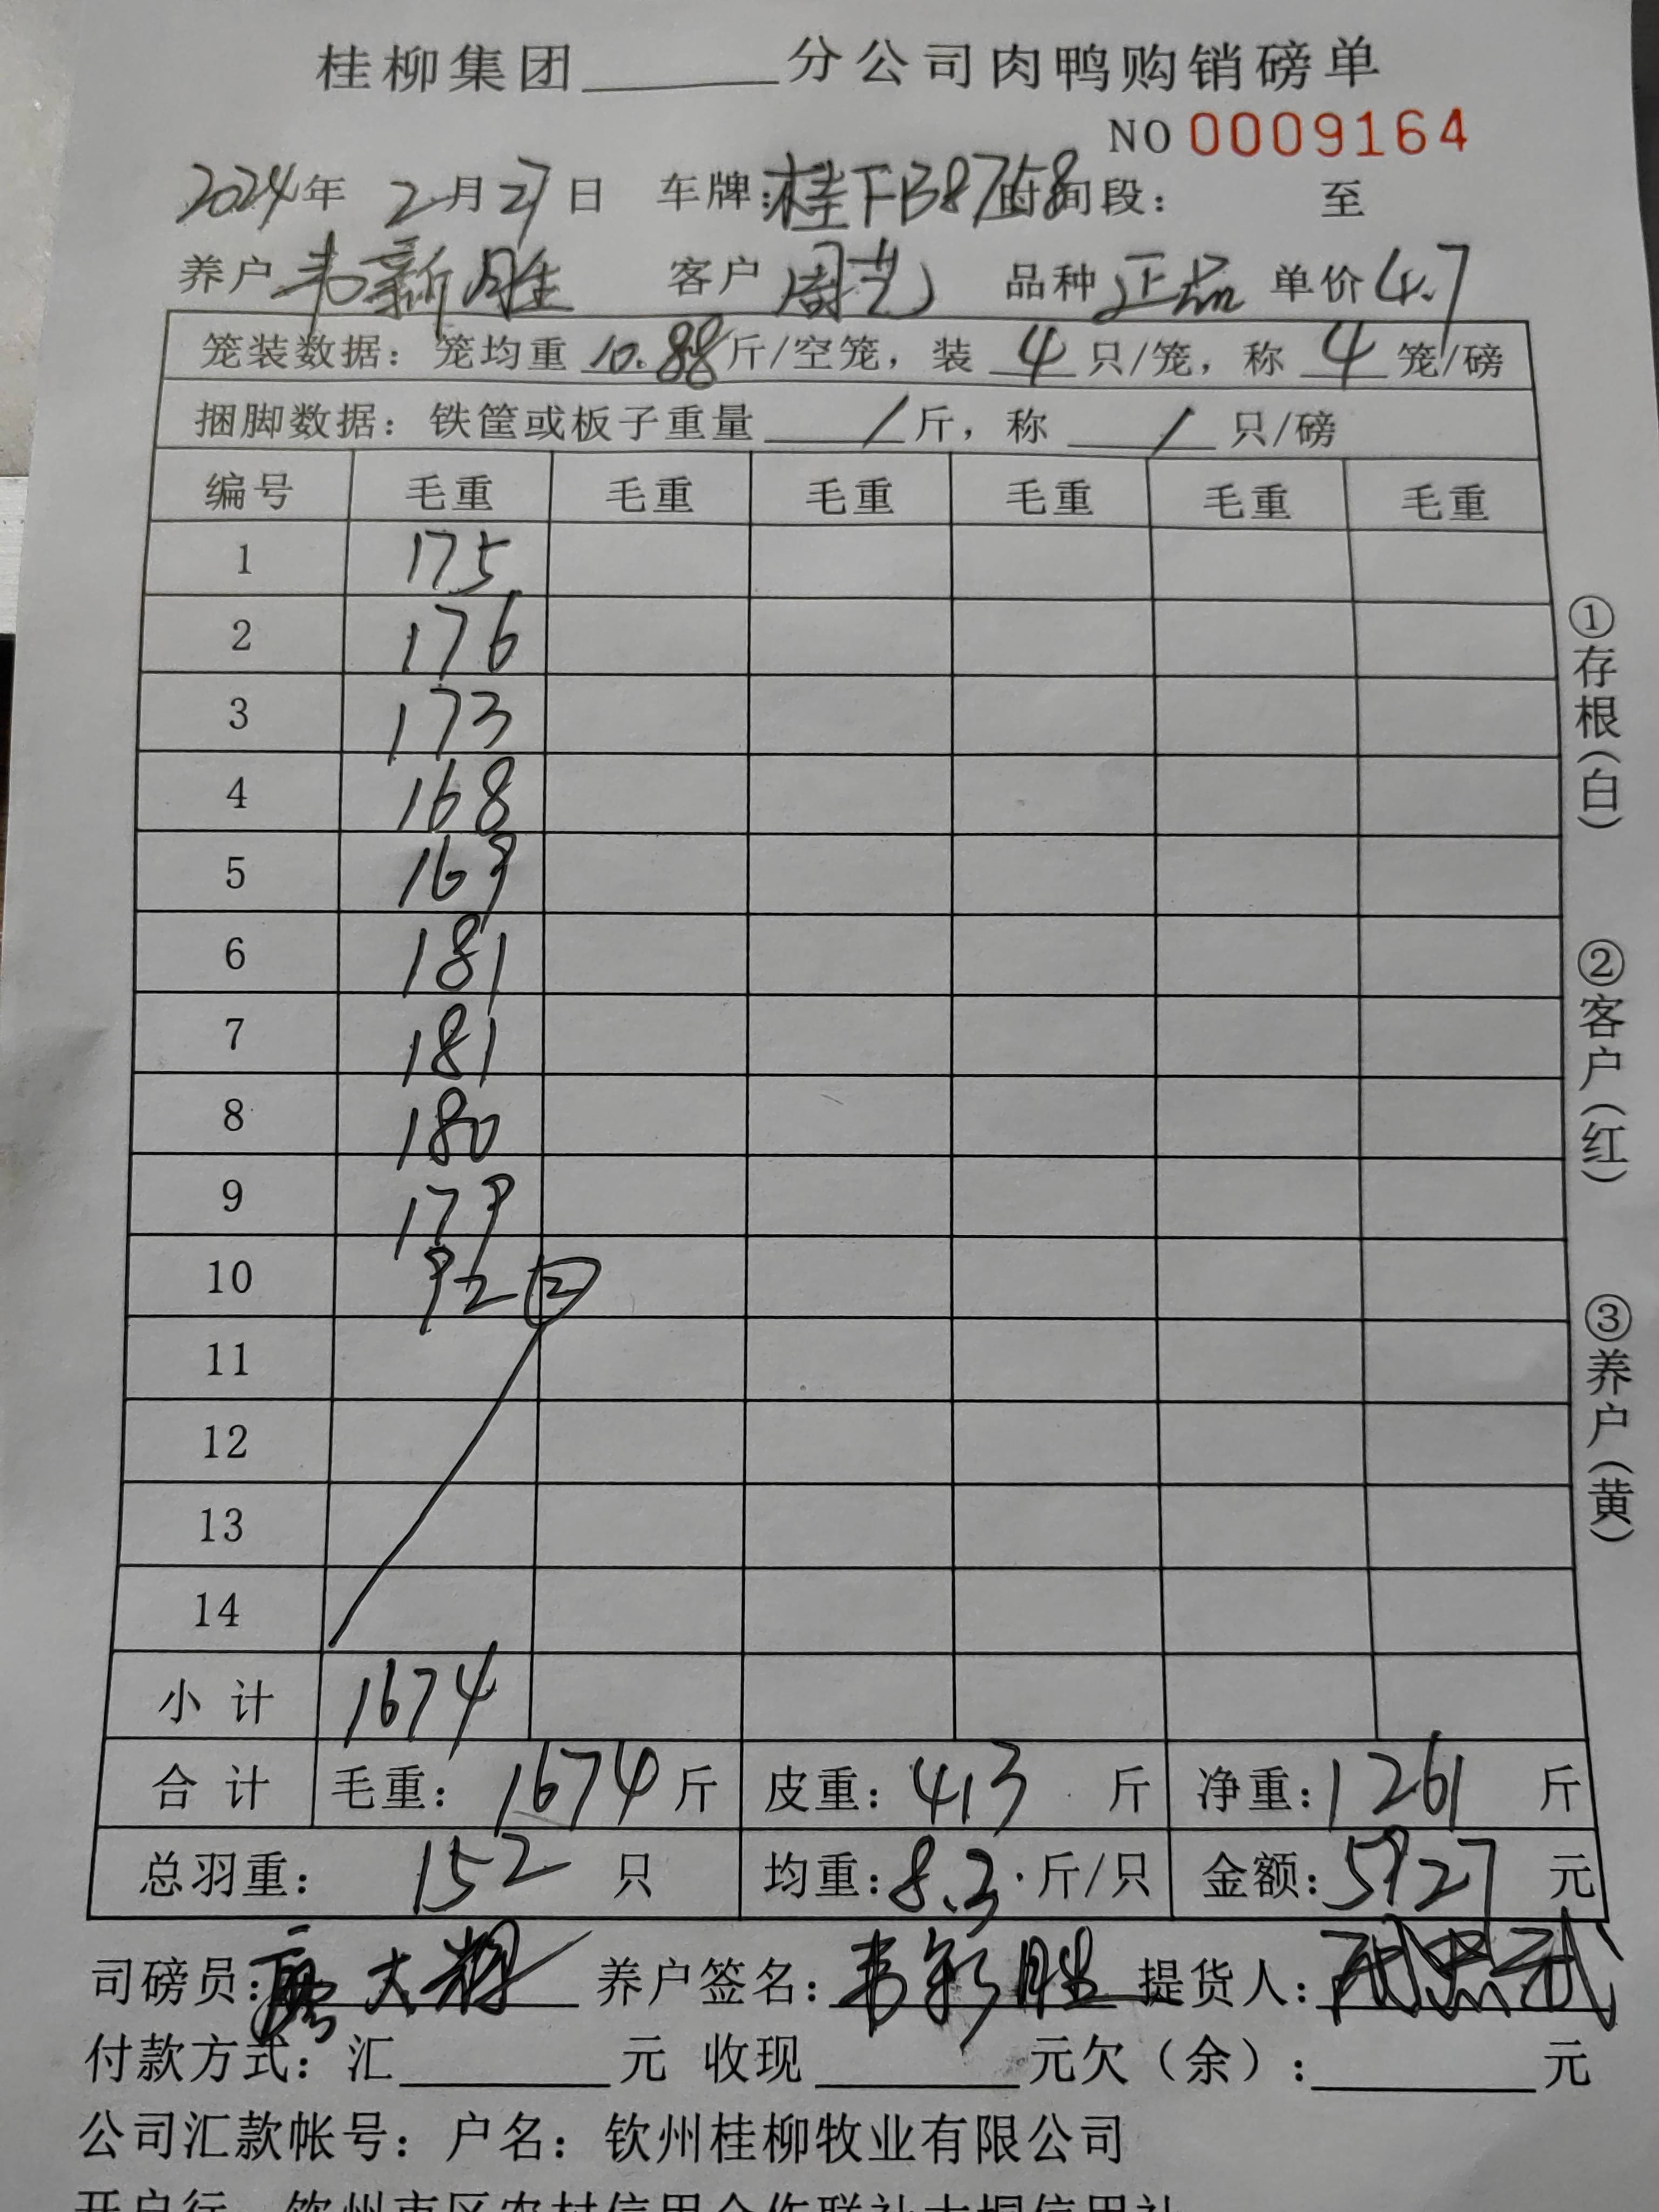 桂柳集团______分公司肉鸭购销磅单
NO 0009164
2024年 2月27日 车牌:桂FB8758 时间段: 至
养户 韦新胜 客户 周艺 品种 正品 单价 4.7
笼装数据：笼均重 10.88 斤/空笼，装 4 只/笼，称 4 笼/磅
捆脚数据：铁筐或板子重量 / 斤，称 / 只/磅
编号 毛重 毛重 毛重 毛重 毛重 毛重
1 175
2 176
3 173
4 168
5 169
6 181
7 181
8 180
9 179
10 92 ②
11
12
13
14
小计 1674
合计 毛重：1674斤 皮重：413 斤 净重：1261 斤
总羽重： 152 只 均重：8.3 斤/只 金额：5927 元
司磅员： 大 养户签名：韦新胜 提货人：
付款方式：汇______元 收现______元欠（余）：______元
公司汇款帐号：户名：钦州桂柳牧业有限公司
开户行 钦州市区农村信用合作联社大垌信用社
①存根(白)
②客户(红)
③养户(黄)